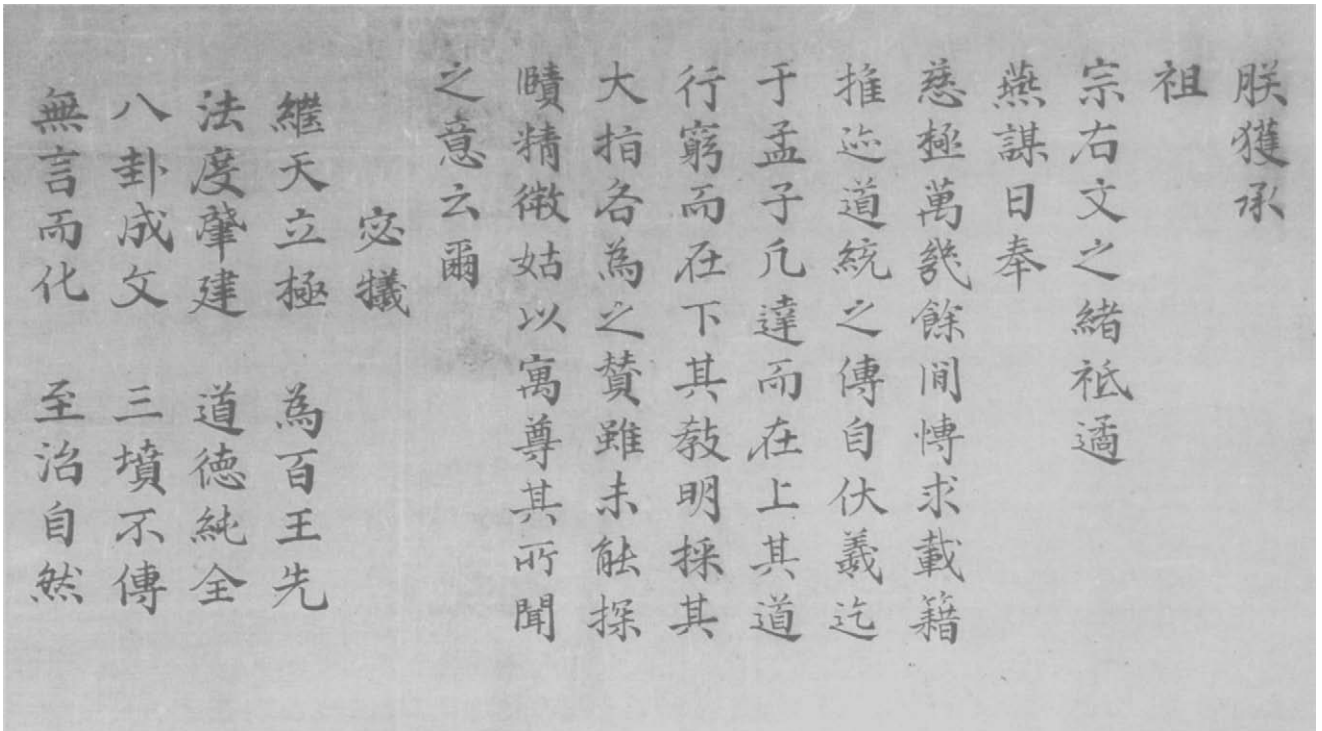 朕獲承
祖
宗右文之緒祗遹
燕謀日奉
慈極萬幾餘閒博求載籍
推迹道統之傳自伏羲迄
于孟子凡達而在上其道
行窮而在下其教明採其
大指各為之贊雖未能探
賾精微姑以寓尊其所聞
之意云爾
宓犧
繼天立極　為百王先
法度肇建　道德純全
八卦成文　三墳不傳
無言而化　至治自然